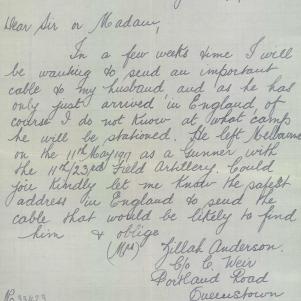 Dear Sir or Madam,
In a few weeks time I will
be wanting to send an important
cable to my husband, and as he has
only just arrived in England, of
course I do not know at what camp
he will be stationed. He left Melbourne
on the 11th May 1917 as a Gunner with
the 11th/23rd Field Artillery. Could
you kindly let me know the safest
address in England to send the
cable that would be likely to find
him & oblige
(Mrs) Zillah Anderson.
C/o C. Weir
Portland Road
Queenstown
No 33423